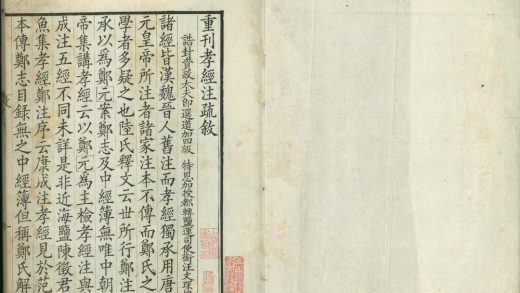 重刊孝經注疏敘
誥封資政大夫即選道加四級 特恩給都轉鹽運司使銜汪文
諸經皆漢魏晉人舊注而孝經獨承用唐
元皇帝所注者諸家注本不傳而鄭氏之
學者多疑之也陸氏釋文云世所行鄭注
承以爲鄭元案鄭志及中經簿無唯中朝
帝集講孝經云以鄭元爲主檢孝經注與
成注五經不同未詳是非近海鹽陳徵君
魚集孝經鄭注序云康成注孝經見於范
本傳鄭志目錄無之中經簿但稱鄭氏解